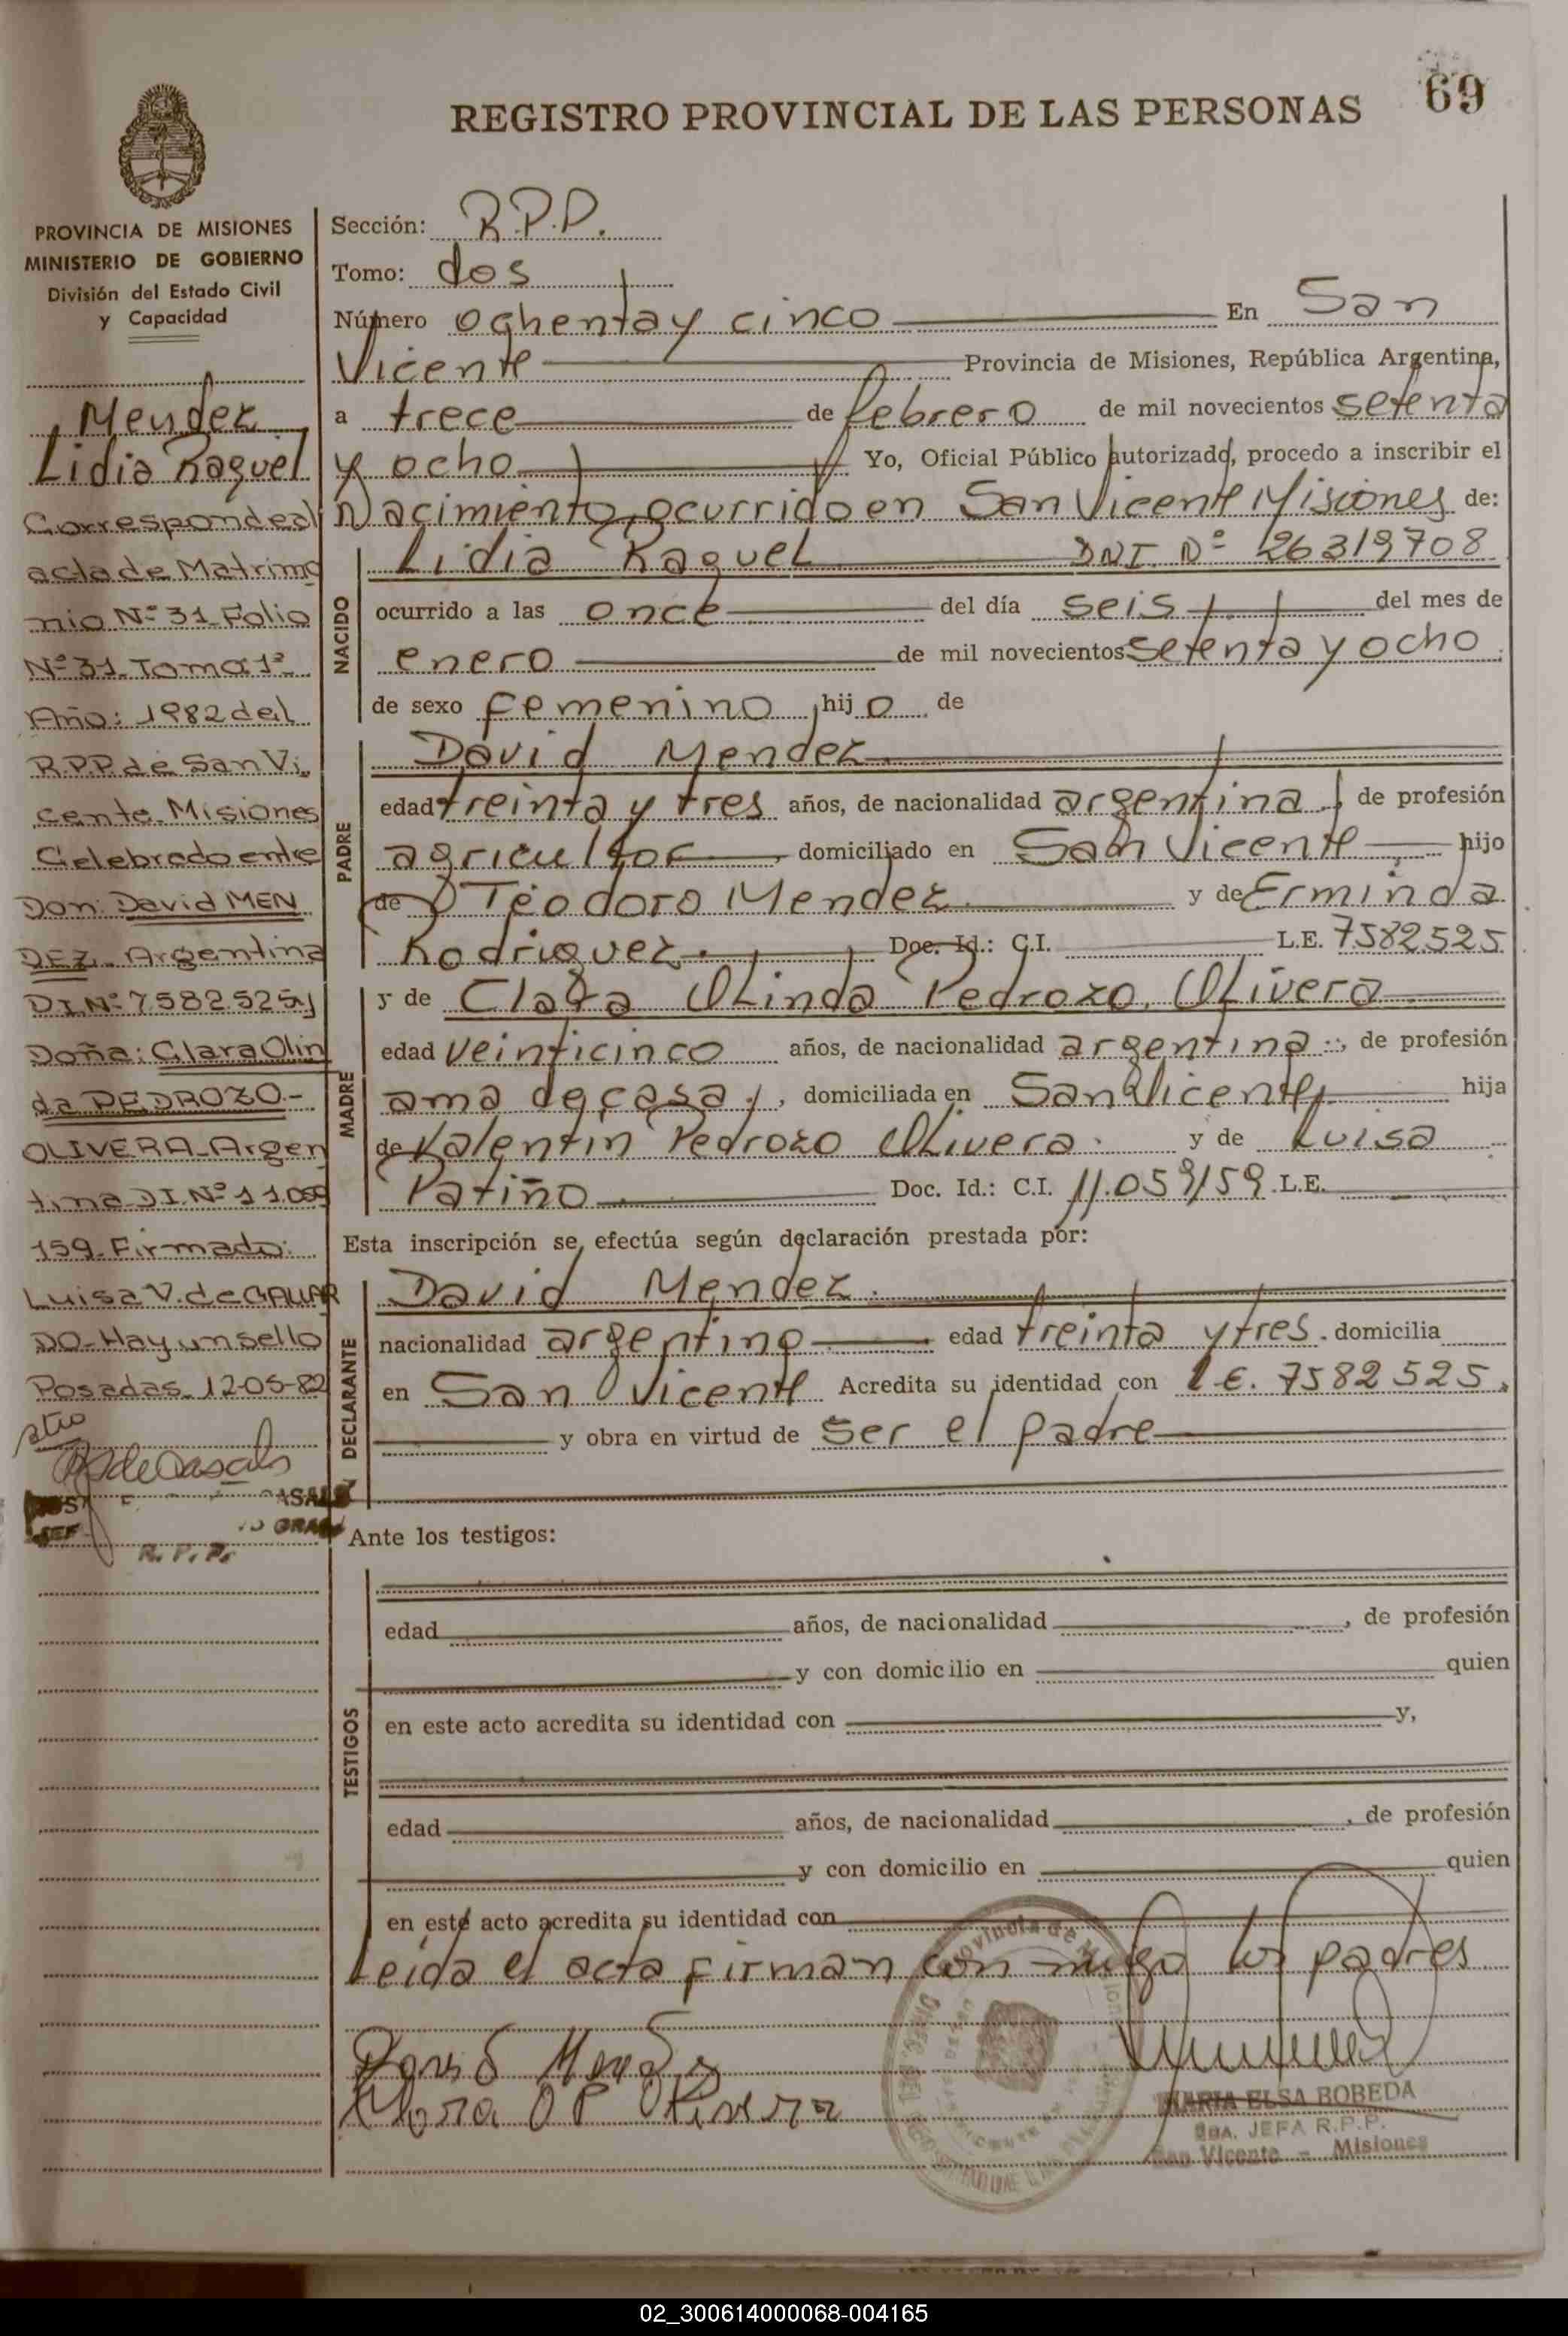 69
REGISTRO PROVINCIAL DE LAS PERSONAS
PROVINCIA DE MISIONES
MINISTERIO DE GOBIERNO
División del Estado Civil
y Capacidad
Mendez
Lidia Raquel
Corresponde al
acta de Matrimo
nio Nº 31 Folio
Nº 31 Tomo 1º
Año: 1982 del
R.P.P. de San Vi
cente Misiones
Celebrado entre
Don: David MEN
DEZ Argentina
D.I. Nº 7582525 y
Doña: Clara Olin
da PEDROZO.-
OLIVERA - Argen
tina D.I. Nº 11.059
159. Firmado:
Luisa V. de GALLAR
DO - Hay un sello
Posadas 12-05-82
R. P. P.
Sección: R.P.P.
Tomo: dos
Número oghenta y cinco En San
Vicente Provincia de Misiones, República Argentina,
a trece de febrero de mil novecientos setenta
y ocho Yo, Oficial Público autorizado, procedo a inscribir el
Nacimiento, ocurrido en San Vicente Misiones de:
NACIDO
Lidia Raquel DNI. Nº 26319708
ocurrido a las once del día seis del mes de
enero de mil novecientos setenta y ocho
de sexo femenino, hij o de
PADRE
David Mendez
edad treinta y tres años, de nacionalidad argentina, de profesión
agricultor, domiciliado en San Vicente hijo
de Teodoro Mendez y de Erminda
Rodriguez. Doc. Id.: C.I. L.E. 7582525
MADRE
y de Clara Olinda Pedrozo Olivera
edad veinticinco años, de nacionalidad argentina, de profesión
ama de casa, domiciliada en San Vicente, hija
de Valentin Pedrozo Olivera y de Luisa
Patiño Doc. Id.: C.I. 11.059159 L.E.
Esta inscripción se efectúa según declaración prestada por:
DECLARANTE
David Mendez
nacionalidad argentino edad treinta y tres. domicilia
en San Vicente Acredita su identidad con L.E. 7582525.
y obra en virtud de ser el padre
Ante los testigos:
TESTIGOS
edad años, de nacionalidad , de profesión
y con domicilio en quien
en este acto acredita su identidad con y,
edad años, de nacionalidad , de profesión
y con domicilio en quien
en este acto acredita su identidad con
Leida el acta firman con migo los padres
David Mendez
Clara O P Olivera
MARIA ELSA BOBEDA
JEFA R.P.P.
San Vicente - Misiones
02_300614000068-004165